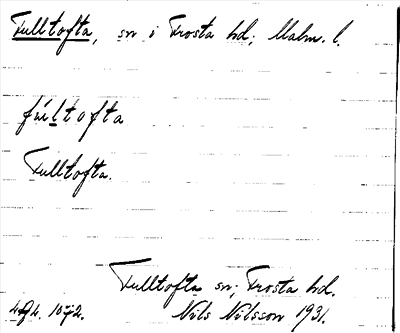 Fulltofta, sn i Frosta hd; Malm. l.
fúltofta
Fulltofta.
Fulltofta sn; Frosta hd.
Nils Nilsson 1931.